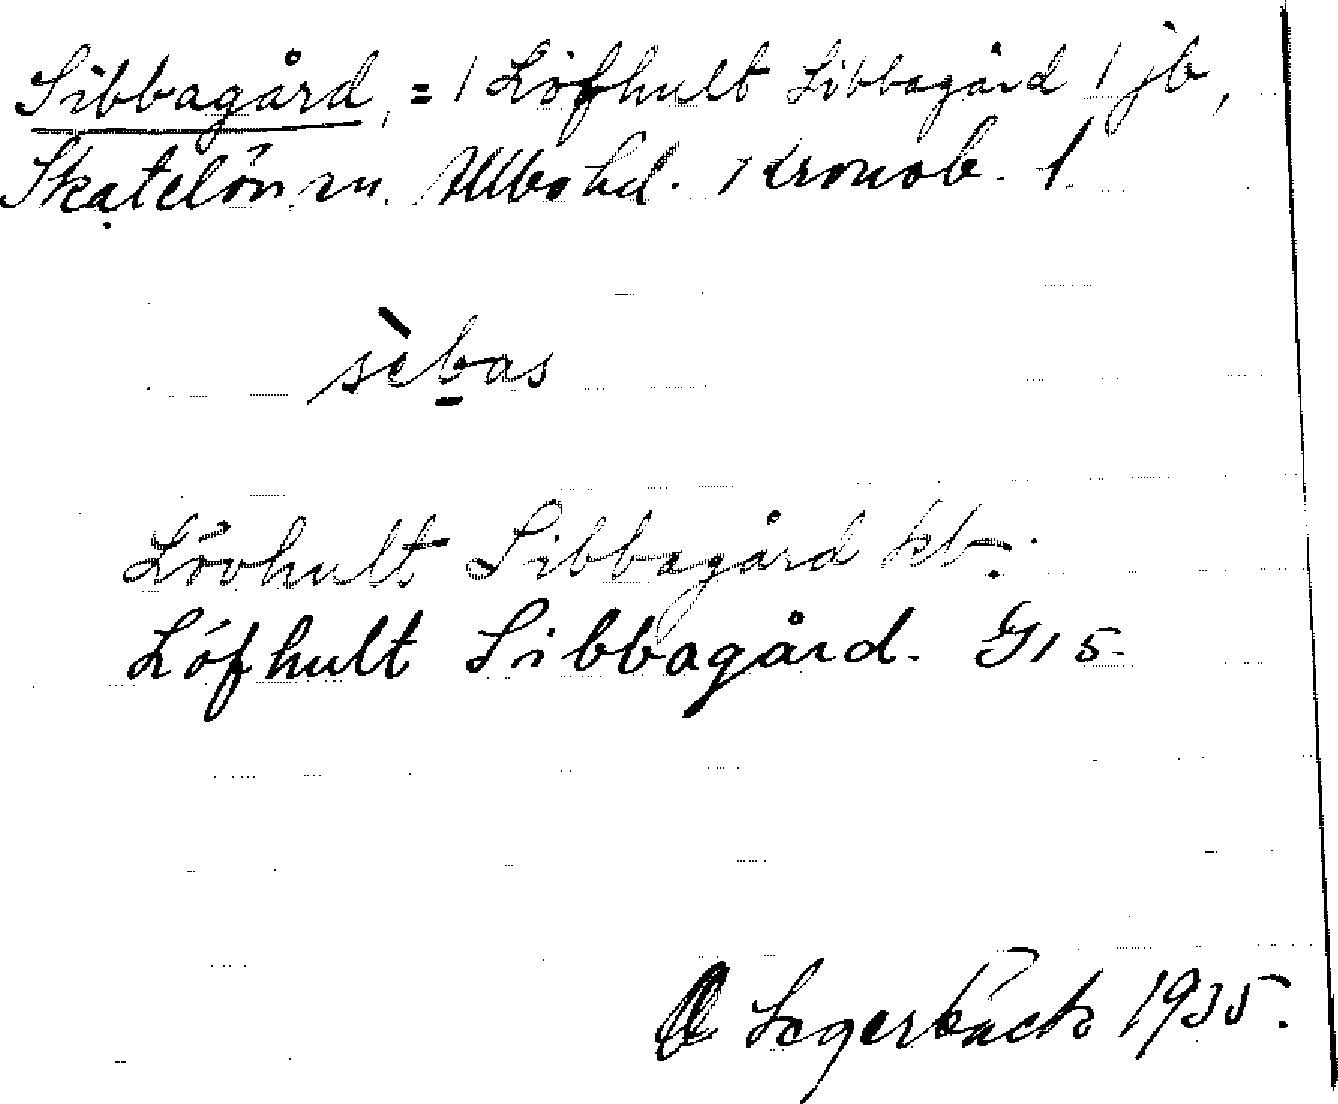 Sibbagård, = 1 Löfhult Sibbagård 1 jb,
Skatelöv sn. Allbo hd. Kronob. l.
sìbas
Lövhult Sibbagård kb.
Löfhult Sibbagård. G15.
O Segerbäck 1935.